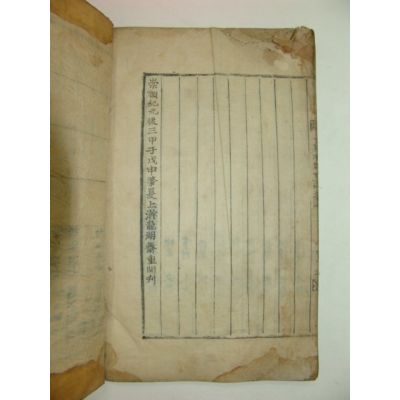 崇禎紀元後三甲子戊申上澣龍湖齋重開刊